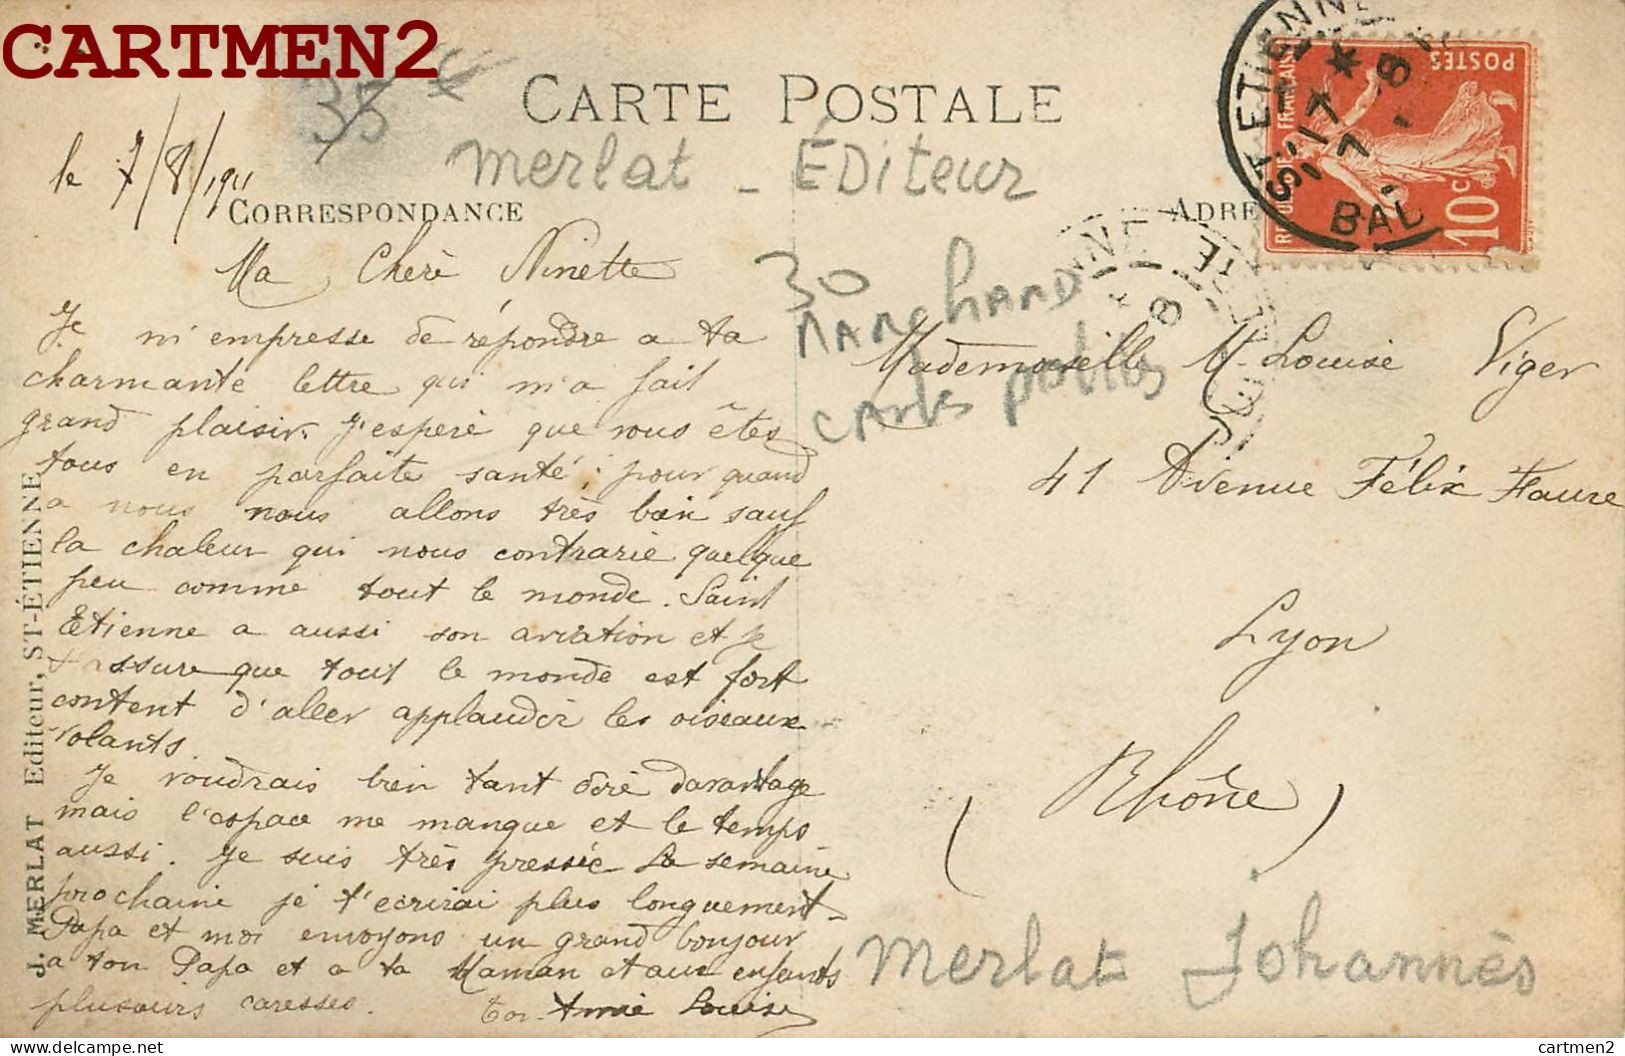 CARTMEN2
35 €
CARTE POSTALE
Merlat - Éditeur
le 7/8/1911
CORRESPONDANCE
ADRE
ST ETIENNE
17 * 8
7 -
BAL
REPUBLIQUE FRANÇAISE
POSTES
10 c
Ma Cherè Ninette
Je m'empresse de répondre a ta
charmante lettre qui m'a fait
grand plaisir. J'esperè que vous êtes
tous en parfaite santé; pour quand
a nous nous allons très bien sauf
la chaleur qui nous contrarie quelque
peu comme tout le monde. Saint
Etienne a aussi son aviation et je
t'assure que tout le monde est fort
content d'aller applaudir les oiseaux
volants.
Je voudrais bien tant dire davantage
mais l'espace me manque et le temps
aussi. Je suis très pressée La semaine
prochaine je t'ecrirai plus longuement.
Papa et moi envoyons un grand bonjour
a ton Papa et a ta Maman et aux enfants
plusieurs caresses. Ton Amie Louise
30
MARCHAND
CARTES POSTALES
Mademoiselle M-Louise Viger
41 Avenue Félix Faure
Lyon
(Rhône)
Merlat Johannès
J. MERLAT Editeur, ST-ÉTIENNE
cartmen2.delcampe.net
cartmen2